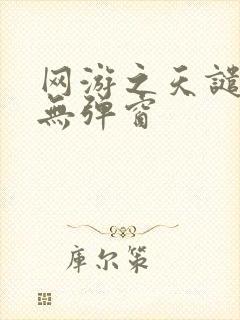 网游之天譴
無弹窗
库尔策